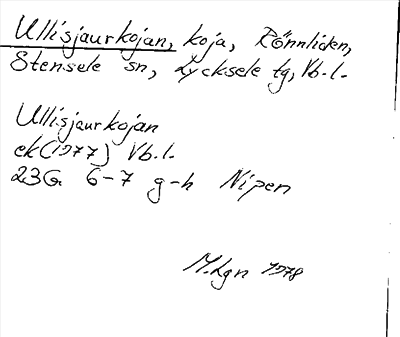 Ullisjaurkojan, koja, Rönnliden,
Stensele sn, Lycksele tg, Vb.l.
Ullisjaurkojan
ek (1977) Vb.l.
23G 6-7 g-h Nipen
M.Lgn 1978